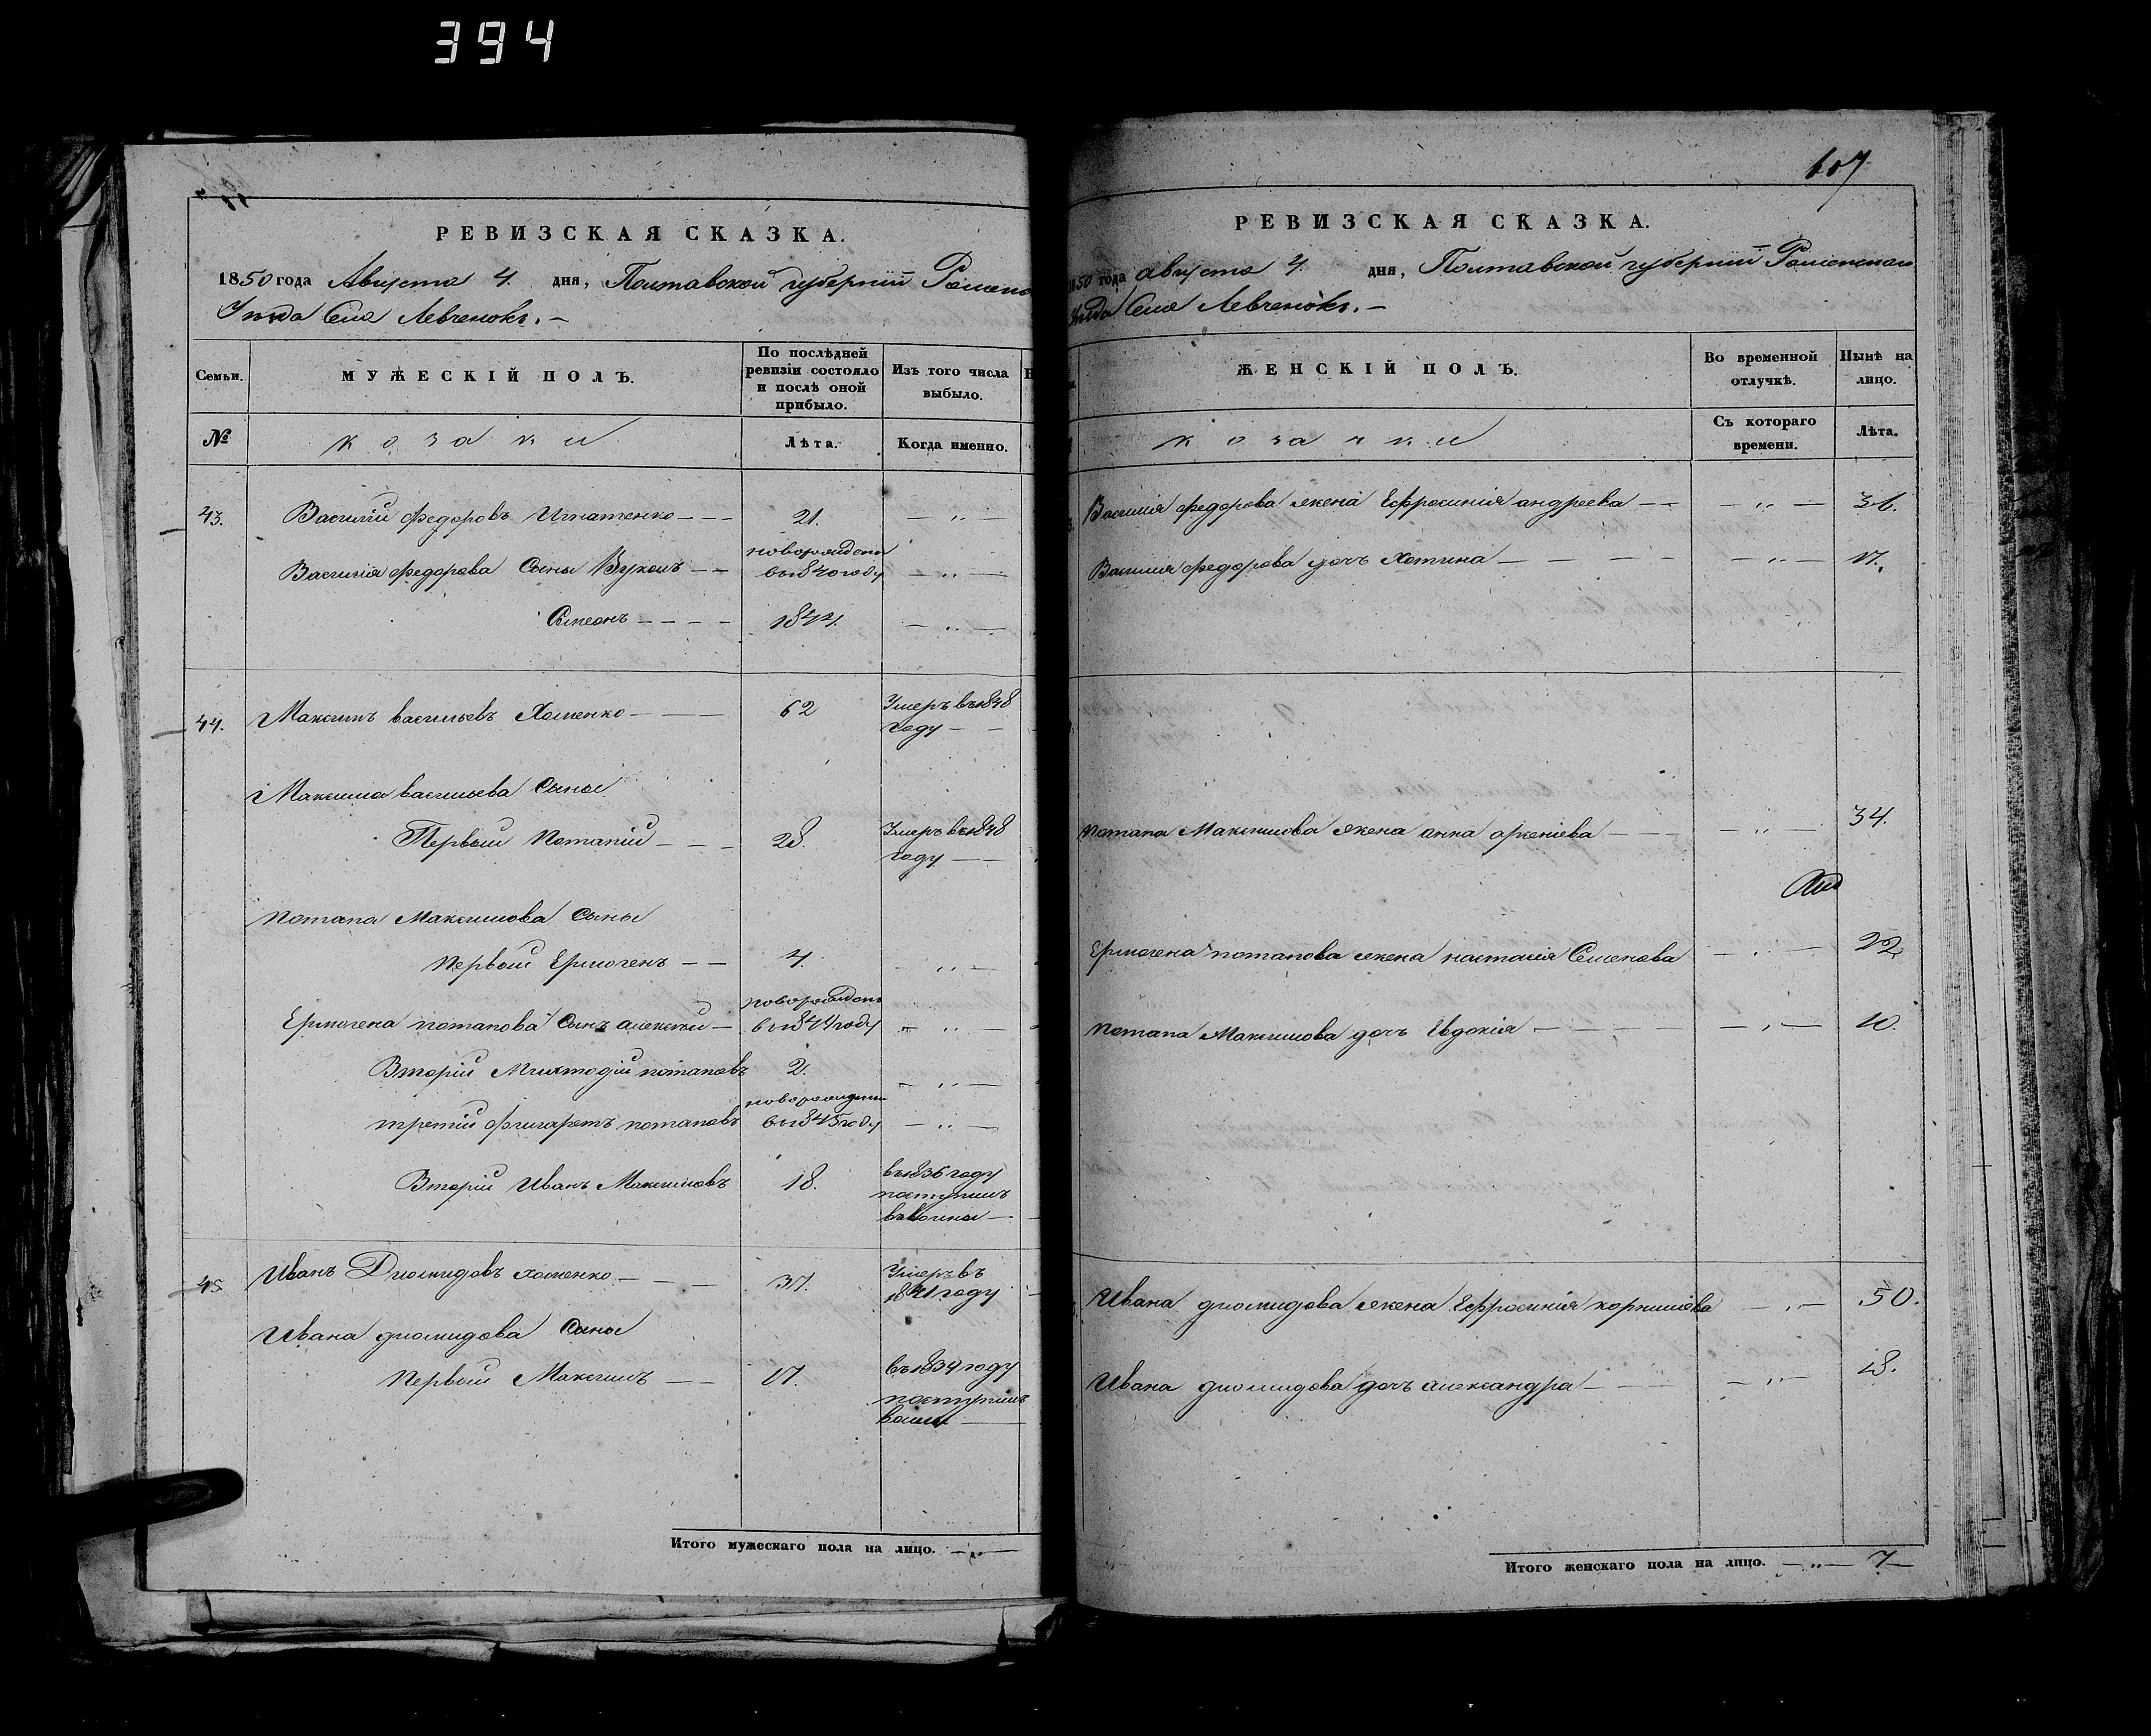 394
РЕВИЗСКАЯ СКАЗКА.
1850 года Августа 4. дня, Полтавской губерніи Роменс
Уѣзда Села Левченокъ.—
Семьи.
МУЖЕСКІЙ ПОЛЪ.
По послѣдней ревизіи состояло и послѣ оной прибыло.
Изъ того числа выбыло.
№
козаки
Лѣта.
Когда именно.
43. Василій федоровъ Игнатенко — — — 21. „ —
новорожден
Василія федорова Сыны Вуколъ — — въ 1840 году — „ —
Симеонъ — — — — 1844. — „ —
44. Максимъ васильевъ Хоменко — — — 62 Умеръ въ 1848
году — —
Максима васильева Сыны
Первый Потапій — — — 28. Умеръ въ 1848
году — —
потапа Максимова Сыны
первый Ермогенъ — — 4. — „ —
новорожден
Ермогена потапова Сынъ алексѣй — въ 1849 году „ — „ —
Вторій Мефтодій потаповъ 2. — „ —
новорожден
третій Филаретъ потаповъ въ 1845 году — „ —
Вторій Иванъ Максимовъ 18. въ 1836 году
поступилъ
45 Иванъ Диомидовъ хоменко — — — 37. Умеръ въ
1841 году
Ивана диомидова Сыны
первый Максимъ — — 17. въ 1834 году
поступилъ
Итого мужескаго пола на лицо. — „ —
107
РЕВИЗСКАЯ СКАЗКА.
1850 года августа 4. дня, Полтавской губерніи Роменскаго
Уѣзда Села Левченокъ.—
ЖЕНСКІЙ ПОЛЪ.
Во временной отлучкѣ.
Нынѣ на лицо.
козачки
Съ котораго времени.
Лѣта.
Василія федорова жена Ефросинія андреева — — — „ — 36.
Василія федорова дочь Хотина — — — „ — 17.
потапа Максимова жена анна арсеніева — — — „ — 34.
Ермогена потапова жена настасія Семенова — „ — 22
потапа Максимова дочь Евдокія — — — — „ — 10.
Ивана диомидова жена Ефросинія корниліева — „ — 50.
Ивана диомидова дочь александра — — — „ — 18.
Итого женскаго пола на лицо. — „ — 7 —